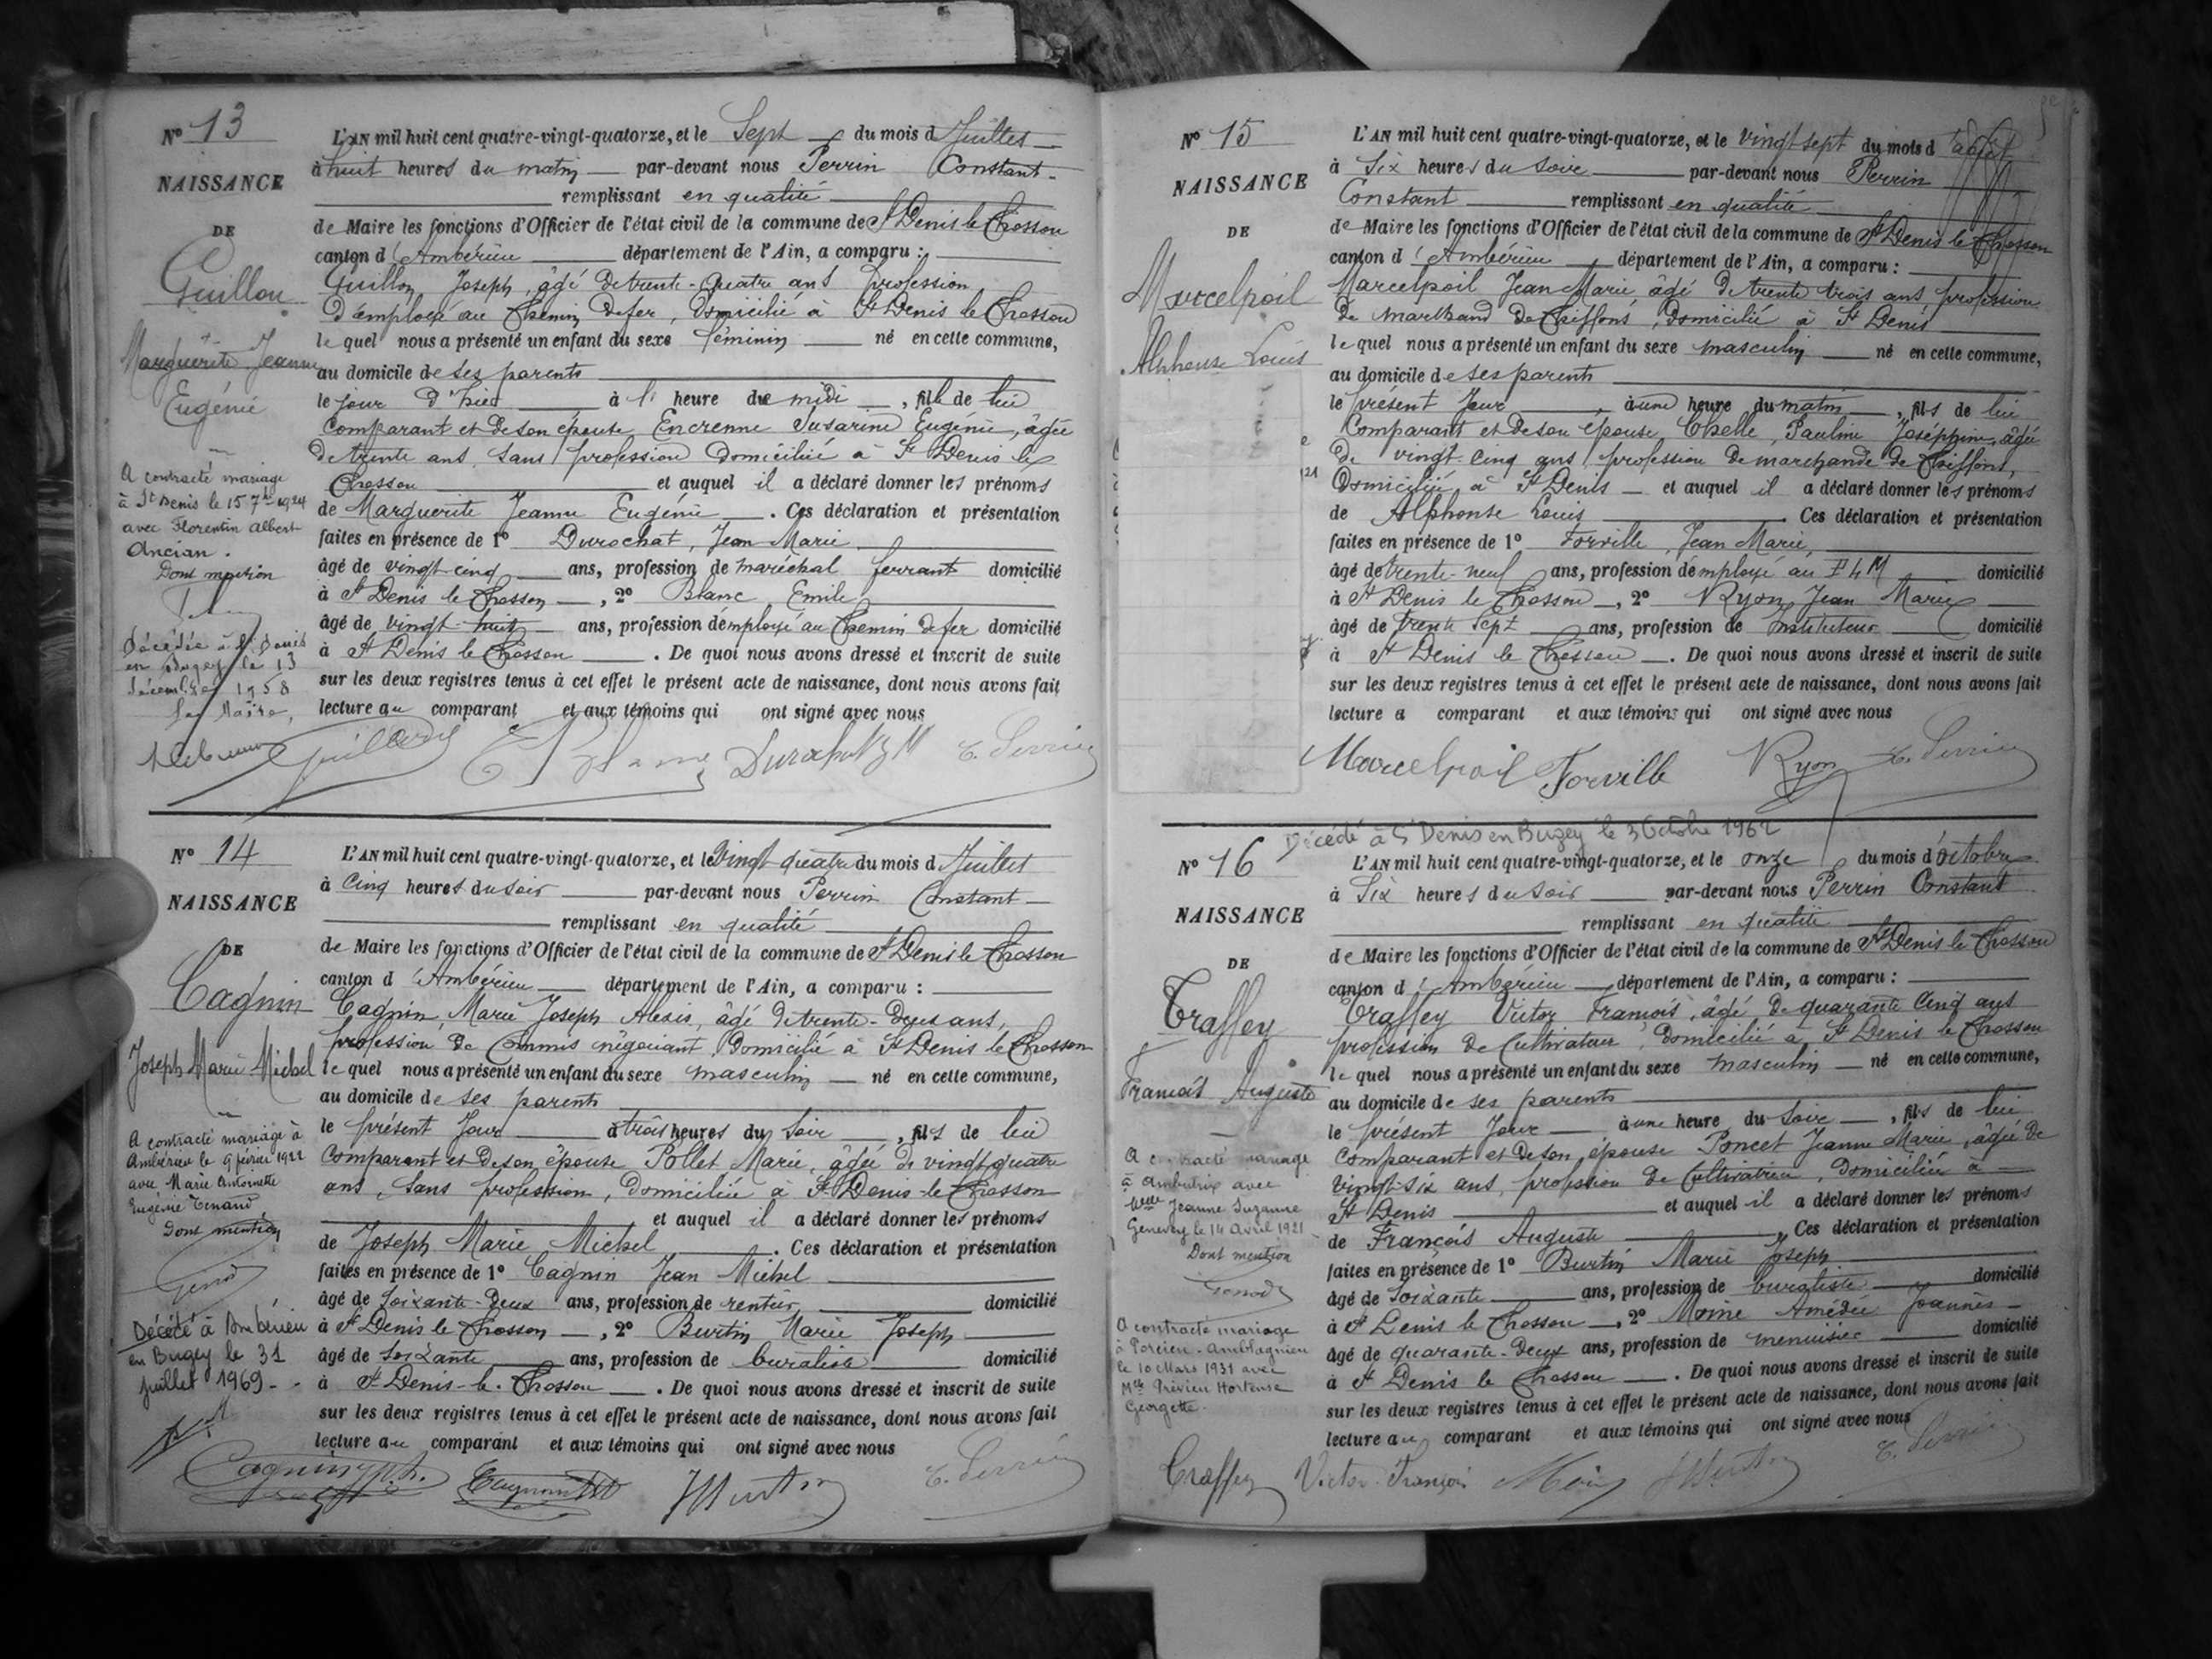 N° 13
NAISSANCE
DE
Guillon
Marguerite Jeanne
Eugénie
A contracté mariage
à St Denis le 15 7bre 1924
avec Florentin Albert
Ancian.
Dont mention
Décédée à St Denis
en Bugey le 13
décembre 1958
Le Maire,
L'AN mil huit cent quatre-vingt-quatorze, et le Sept du mois d Juillet
à huit heures du matin par-devant nous Perrin Constant
remplissant en qualité
de Maire les fonctions d'Officier de l'état civil de la commune de St Denis le Chosson
canton d'Ambérieu département de l'Ain, a comparu :
Guillon Joseph, âgé de trente-quatre ans profession
d'employé au Chemin de fer, domicilié à St Denis le Chosson
le quel nous a présenté un enfant du sexe féminin né en cette commune,
au domicile de ses parents
le jour d'hier à l' heure de midi, fille de lui
Comparant et de son épouse Encrenne Susarine Eugénie, âgée
de trente ans, sans profession domiciliée à St Denis le
Chosson et auquel il a déclaré donner les prénoms
de Marguerite Jeanne Eugénie. Ces déclaration et présentation
faites en présence de 1° Durochat, Jean Marie
âgé de vingt cinq ans, profession de maréchal ferrant domicilié
à St Denis le Chosson, 2° Blanc Emile
âgé de vingt-huit ans, profession d'employé au Chemin de fer domicilié
à St Denis le Chosson. De quoi nous avons dressé et inscrit de suite
sur les deux registres tenus à cet effet le présent acte de naissance, dont nous avons fait
lecture au comparant et aux témoins qui ont signé avec nous
C. Perrin
N° 14
NAISSANCE
DE
Cagnin
Joseph Marie Michel
A contracté mariage à
Ambérieu le 9 février 1922
avec Marie Antoinette
Eugénie Tenand
Dont mention
Genod
Décédé à Ambérieu
en Bugey le 31
juillet 1969
L'AN mil huit cent quatre-vingt-quatorze, et le Vingt quatre du mois d Juillet
à Cinq heures du soir par-devant nous Perrin Constant
remplissant en qualité
de Maire les fonctions d'Officier de l'état civil de la commune de St Denis le Chosson
canton d'Ambérieu département de l'Ain, a comparu :
Cagnin Marie Joseph Alexis, âgé de trente-deux ans,
profession de Commis négociant, domicilié à St Denis le Chosson
le quel nous a présenté un enfant du sexe masculin né en cette commune,
au domicile de ses parents
le présent Jour à trois heures du Soir, fils de lui
Comparant et de son épouse Pollet Marie, âgée de vingt quatre
ans, sans profession, domiciliée à St Denis-le Chosson
et auquel il a déclaré donner les prénoms
de Joseph Marie Michel. Ces déclaration et présentation
faites en présence de 1° Cagnin Jean Michel
âgé de Soixante-deux ans, profession de rentier domicilié
à St Denis le Chosson, 2° Burtin Marie Joseph
âgé de Soixante ans, profession de buraliste domicilié
à St Denis-le-Chosson. De quoi nous avons dressé et inscrit de suite
sur les deux registres tenus à cet effet le présent acte de naissance, dont nous avons fait
lecture au comparant et aux témoins qui ont signé avec nous
C. Perrin
N° 15
NAISSANCE
DE
Marcelpoil
Alphonse Louis
L'AN mil huit cent quatre-vingt-quatorze, et le vingt sept du mois d
à Six heures du soir par-devant nous Perrin
Constant remplissant en qualité
de Maire les fonctions d'Officier de l'état civil de la commune de St Denis le Chosson
canton d'Ambérieu département de l'Ain, a comparu :
Marcelpoil Jean Marie âgé de trente trois ans, profession
de marchand de Chiffons, domicilié à St Denis
le quel nous a présenté un enfant du sexe masculin né en cette commune,
au domicile de ses parents
le présent Jour, à une heure du matin, fils de lui
Comparant et de son épouse Chelle, Pauline Joséphine, âgée
de vingt-cinq ans, profession de marchande de Chiffons,
Domiciliée à St Denis et auquel il a déclaré donner les prénoms
de Alphonse Louis Ces déclaration et présentation
faites en présence de 1° Forville, Jean Marie,
âgé de trente-neuf ans, profession d'employé au domicilié
à St Denis le Chosson, 2° Ryon Jean Marie
âgé de trente sept ans, profession de Instituteur domicilié
à St Denis le Chosson. De quoi nous avons dressé et inscrit de suite
sur les deux registres tenus à cet effet le présent acte de naissance, dont nous avons fait
lecture a comparant et aux témoins qui ont signé avec nous
Marcelpoil Forville Ryon C. Perrin
Décédé à St Denis en Bugey le 3 Octobre 1962
N° 16
NAISSANCE
DE
Traffey
François Auguste
A contracté mariage
à Ambutrix avec
Melle Jeanne Suzanne
Genevey le 14 Avril 1921
Dont mention
Genod
A contracté mariage
à Porcieu-Amblagnieu
le 10 Mars 1931 avec
Melle Prévieu Hortense
Georgette.
L'AN mil huit cent quatre-vingt-quatorze, et le onze du mois d'Octobre
à Six heures du Soir par-devant nous Perrin Constant
remplissant en qualité
de Maire les fonctions d'Officier de l'état civil de la commune de St Denis le Chosson
canton d'Ambérieu département de l'Ain, a comparu :
Traffey Victor François, âgé de quarante cinq ans
profession de Cultivateur, domicilié à St Denis le Chosson
le quel nous a présenté un enfant du sexe masculin né en cette commune,
au domicile de ses parents
le présent Jour à une heure du Soir, fils de lui
Comparant et de son épouse Poncet Jeanne Marie, âgée de
vingt-six ans, profession de Cultivatrice, domiciliée à
St Denis et auquel il a déclaré donner les prénoms
de François Auguste. Ces déclaration et présentation
faites en présence de 1° Burtin Marie Joseph
âgé de Soixante ans, profession de buraliste domicilié
à St Denis le Chosson, 2° Moine Amédée Joannès
âgé de quarante-deux ans, profession de menuisier domicilié
à St Denis le Chosson. De quoi nous avons dressé et inscrit de suite
sur les deux registres tenus à cet effet le présent acte de naissance, dont nous avons fait
lecture au comparant et aux témoins qui ont signé avec nous
Traffey Victor François C. Perrin